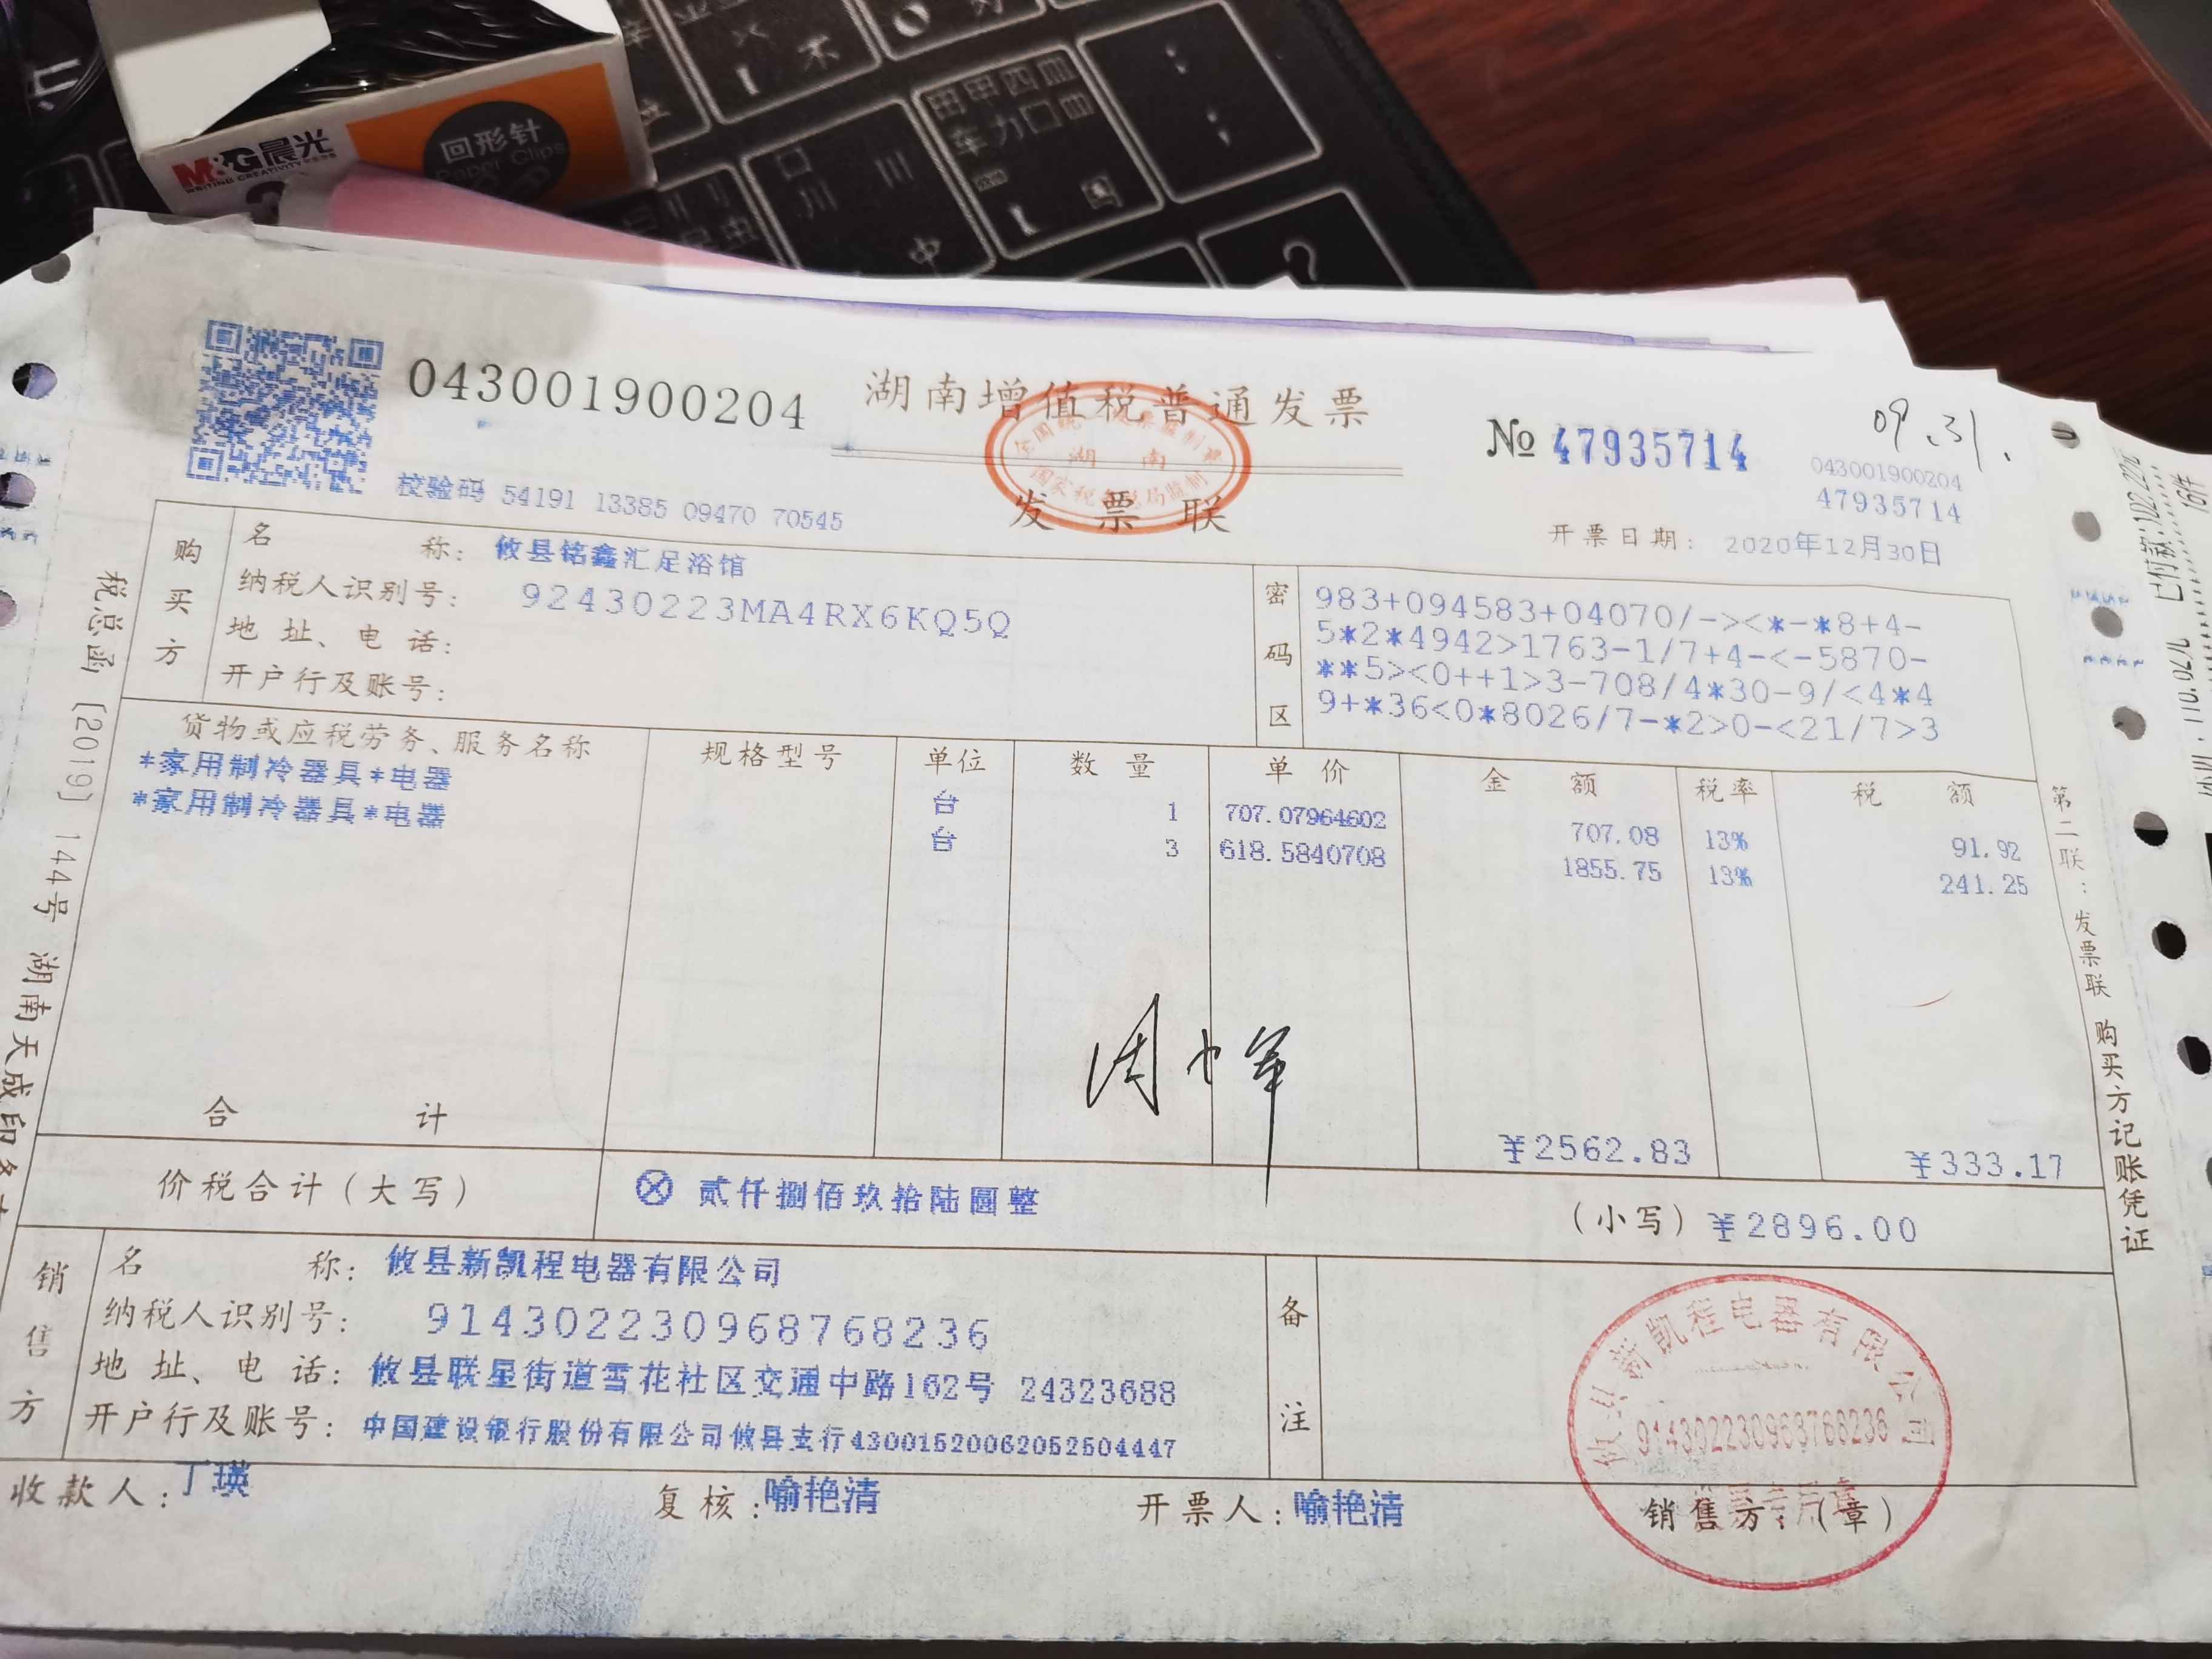 M&G晨光
WRITING CREATIVITY
回形针
Paper Clips
043001900204
湖南增值税普通发票
全国统一发票监制章
湖 南
国家税务总局监制
发票联
№ 47935714
09.31.
043001900204
47935714
校验码 54191 13385 09470 70545
开票日期: 2020年12月30日
购买方
名 称: 攸县铭鑫汇足浴馆
纳税人识别号: 92430223MA4RX6KQ5Q
地 址、电 话:
开户行及账号:
密码区
983+094583+04070/-><*-*8+4-
5*2*4942>1763-1/7+4-<-5870-
**5><0++1>3-708/4*30-9/<4*4
9+*36<0*8026/7-*2>0-<21/7>3
货物或应税劳务、服务名称 规格型号 单位 数 量 单 价 金 额 税率 税 额
*家用制冷器具*电器 台 1 707.07964602 707.08 13% 91.92
*家用制冷器具*电器 台 3 618.5840708 1855.75 13% 241.25
合 计 ¥2562.83 ¥333.17
价税合计(大写) ⊗ 贰仟捌佰玖拾陆圆整 (小写) ¥2896.00
销售方
名 称: 攸县新凯程电器有限公司
纳税人识别号: 914302230968768236
地 址、电 话: 攸县联星街道雪花社区交通中路162号 24323688
开户行及账号: 中国建设银行股份有限公司攸县支行43001520062052504447
备注
攸县新凯程电器有限公司
914302230968768236
发票专用章
收款人: 丁瑛 复核: 喻艳清 开票人: 喻艳清 销售方:(章)
税总函[2019]144号 湖南天成印务
第二联:发票联 购买方记账凭证